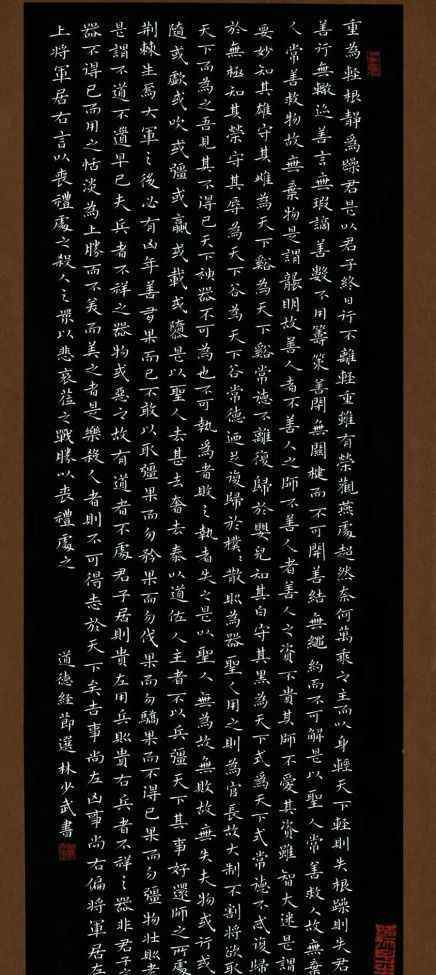 重為輕根靜為躁君是以君子終日行不離輕重雖有榮觀燕處超然奈何萬乘之主而以身輕天下輕則失根躁則失君
善行無轍迹善言無瑕讁善數不用籌策善閉無關楗而不可開善結無繩約而不可解是以聖人常善救人故無棄
人常善救物故無棄物是謂襲明故善人者不善人之師不善人者善人之資不貴其師不愛其資雖智大迷是謂
要妙知其雄守其雌為天下谿為天下谿常德不離復歸於嬰兒知其白守其黑為天下式為天下式常德不忒復歸
於無極知其榮守其辱為天下谷為天下谷常德乃足復歸於樸樸散則為器聖人用之則為官長故大制不割將欲取
天下而為之吾見其不得已天下神器不可為也不可執為者敗之執者失之是以聖人無為故無敗故無失夫物或行或
隨或歔或吹或彊或羸或載或隳是以聖人去甚去奢去泰以道佐人主者不以兵彊天下其事好還師之所處
荊棘生焉大軍之後必有凶年善者果而已不敢以取彊果而勿矜果而勿伐果而勿驕果而不得已果而勿彊物壯則老
是謂不道不道早已夫兵者不祥之器物或惡之故有道者不處君子居則貴左用兵則貴右兵者不祥之器非君子
器不得已而用之恬淡為上勝而不美而美之者是樂殺人者則不可得志於天下矣吉事尚左凶事尚右偏將軍居左
上將軍居右言以喪禮處之殺人之眾以悲哀蒞之戰勝以喪禮處之
道德經節選 林少武書